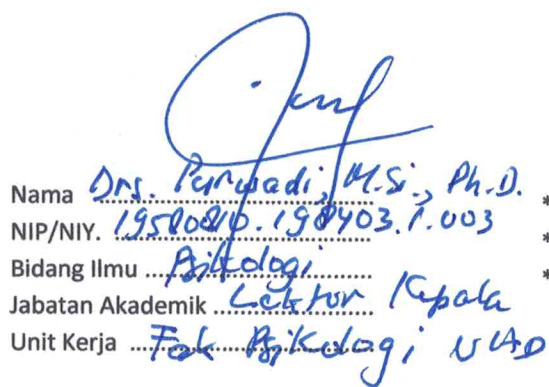 Nama Drs. Purwadi, M.Si., Ph.D. *
NIP/NIY. 19580810.198403.1.003 *
Bidang Ilmu Psikologi *
Jabatan Akademik Lektor Kepala
Unit Kerja Fak Psikologi UAD